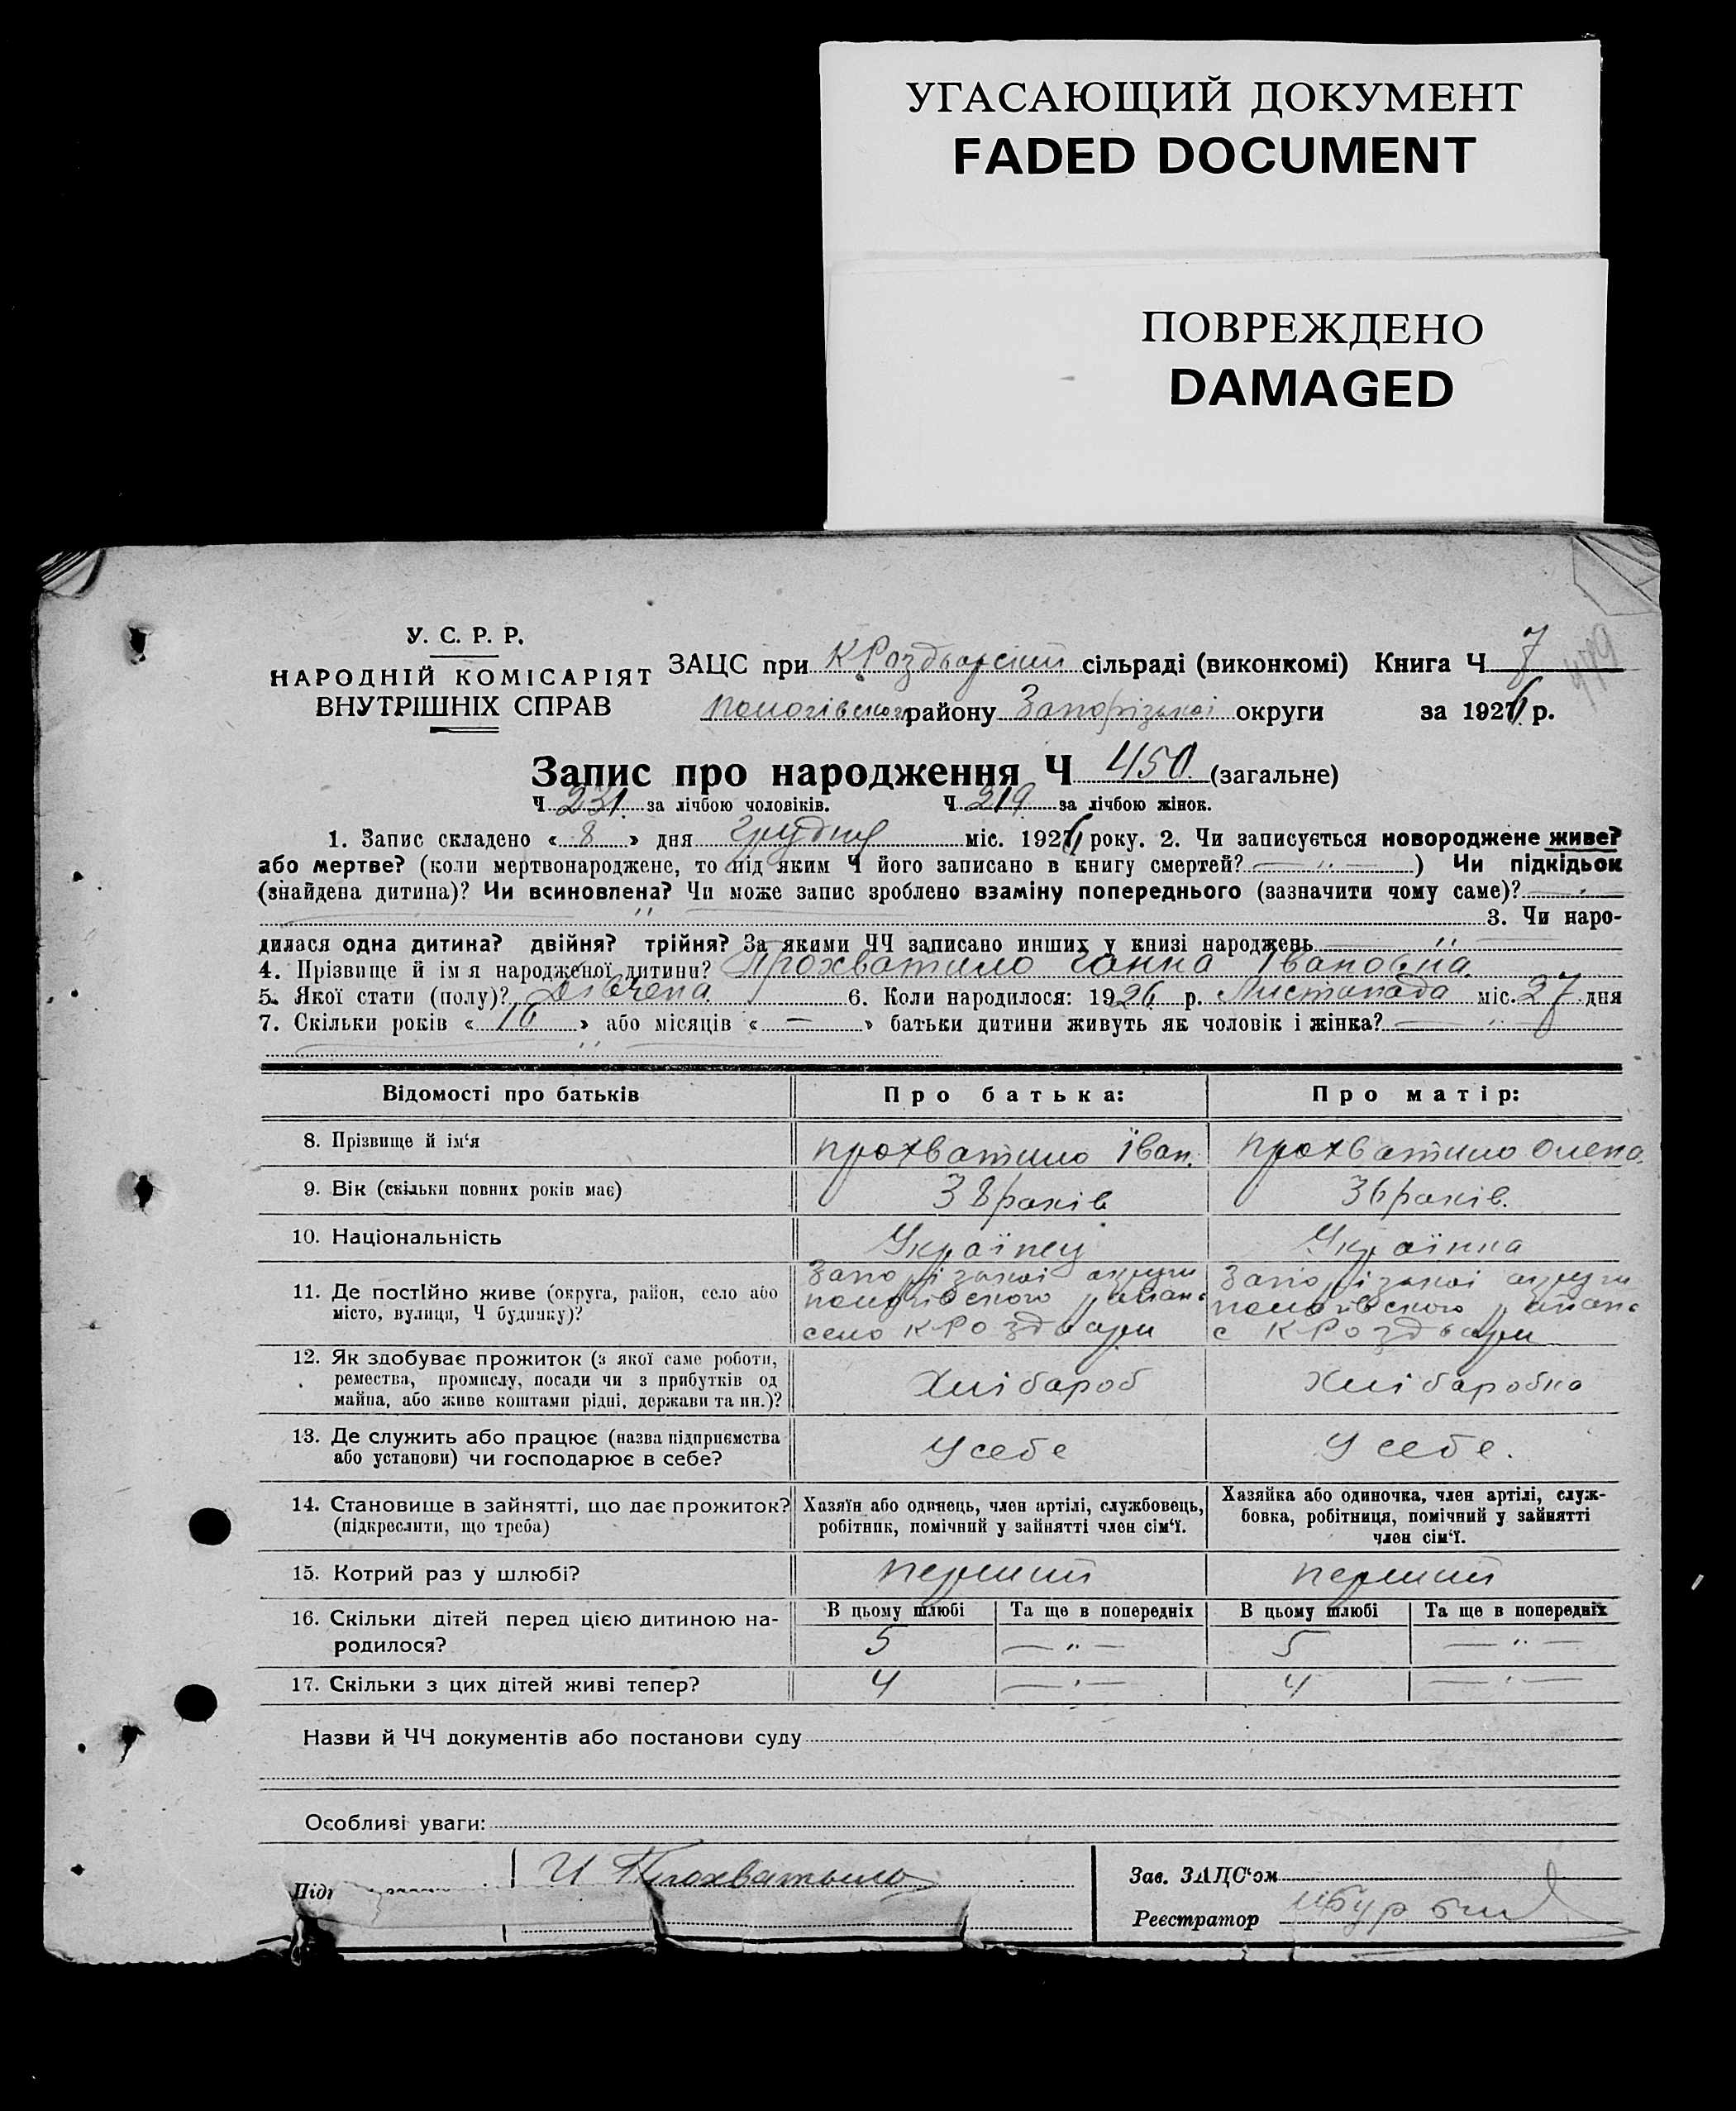 УГАСАЮЩИЙ ДОКУМЕНТ
FADED DOCUMENT
ПОВРЕЖДЕНО
DAMAGED
У. С. Р. Р.
НАРОДНІЙ КОМІСАРІЯТ
ВНУТРІШНІХ СПРАВ
ЗАЦС при К Роздорскій сільраді (виконкомі) Книга Ч 7
пологівского району Запорізькоі округи за 1926 р.
Запис про народження Ч 450 (загальне)
Ч 231 за лічбою чоловіків. Ч 219 за лічбою жінок.
1. Запис складено « 8 » дня грудня міс. 1926 року. 2. Чи записується новороджене живе?
або мертве? (коли мертвонароджене, то під яким Ч його записано в книгу смертей? — " — ) Чи підкідьок
(знайдена дитина)? Чи всиновлена? Чи може запис зроблено взаміну попереднього (зазначити чому саме)?
— " — 3. Чи наро-
дилася одна дитина? двійня? трійня? За якими ЧЧ записано инших у книзі народжень — " —
4. Прізвище й імя народженої дитини? Прохватило Ганна Івановна
5. Якої стати (полу)? Дівчена 6. Коли народилося: 1926 р. Листопада міс. 27 дня
7. Скільки років « 16 » або місяців « — » батьки дитини живуть як чоловік і жінка? — " —
— " —
Відомості про батьків Про батька: Про матір:
8. Прізвище й ім‘я прохватило Іван. прохватило Олена.
9. Вік (скільки повних років має) 38 років 36 років.
10. Національність Українец Українка
11. Де постійно живе (округа, район, село або
місто, вулиця, Ч будинку)?
Запорізькоі округи
пологівского района
село К Роздори
Запорізькоі округи
пологівского района
с К Роздори
12. Як здобуває прожиток (з якої саме роботи,
ремества, промислу, посади чи з прибутків од
майна, або живе коштами рідні, держави та ин.)?
Хлібороб Хліборобка
13. Де служить або працює (назва підприємства
або установи) чи господарює в себе?
У себе У себе.
14. Становище в зайнятті, що дає прожиток?
(підкреслити, що треба)
Хазяїн або одинець, член артілі, службовець,
робітник, помічний у зайнятті член сім‘ї.
Хазяйка або одиночка, член артілі, служ-
бовка, робітниця, помічний у зайнятті
член сім‘ї.
15. Котрий раз у шлюбі? перший перший
16. Скільки дітей перед цією дитиною на-
родилося?
В цьому шлюбі Та ще в попередніх В цьому шлюбі Та ще в попередніх
5 — " — 5 — " —
17. Скільки з цих дітей живі тепер? 4 — " — 4 — " —
Назви й ЧЧ документів або постанови суду
Особливі уваги:
И Прохватыло
Зав. ЗАЦС‘ом
Реєстратор